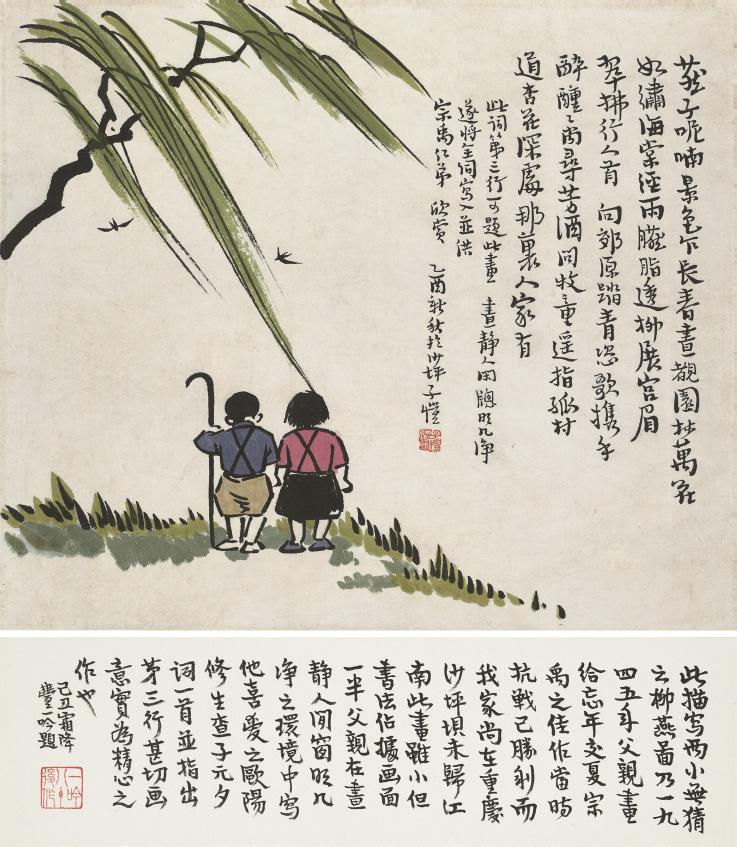 燕子呢喃景色乍長春晝覩園林萬花
如繡海棠經雨臙脂透柳展宮眉
翠拂行人首 向郊原踏青恣歌携手
醉醺〻尚尋芳酒問牧童遥指孤村
道杏花深處那裏人家有
此詞第三行可題此畫 晝静人閑牕明几净
遂將全詞寫入並供
宗禹仁弟 欣賞 乙酉新秋於沙坪子愷
此描写两小無猜
之柳燕圖乃一九
四五年父親畫
給忘年交夏宗
禹之佳作當時
抗戰已勝利而
我家尚在重慶
沙坪埧未歸江
南此畫雖小但
書法佔據画面
一半父親在晝
静人閒窗明几
净之環境中寫
他喜愛之歐陽
修生查子元夕
詞一首並指出
第三行甚切画
意實為精心之
作也
己丑霜降
豐一吟題